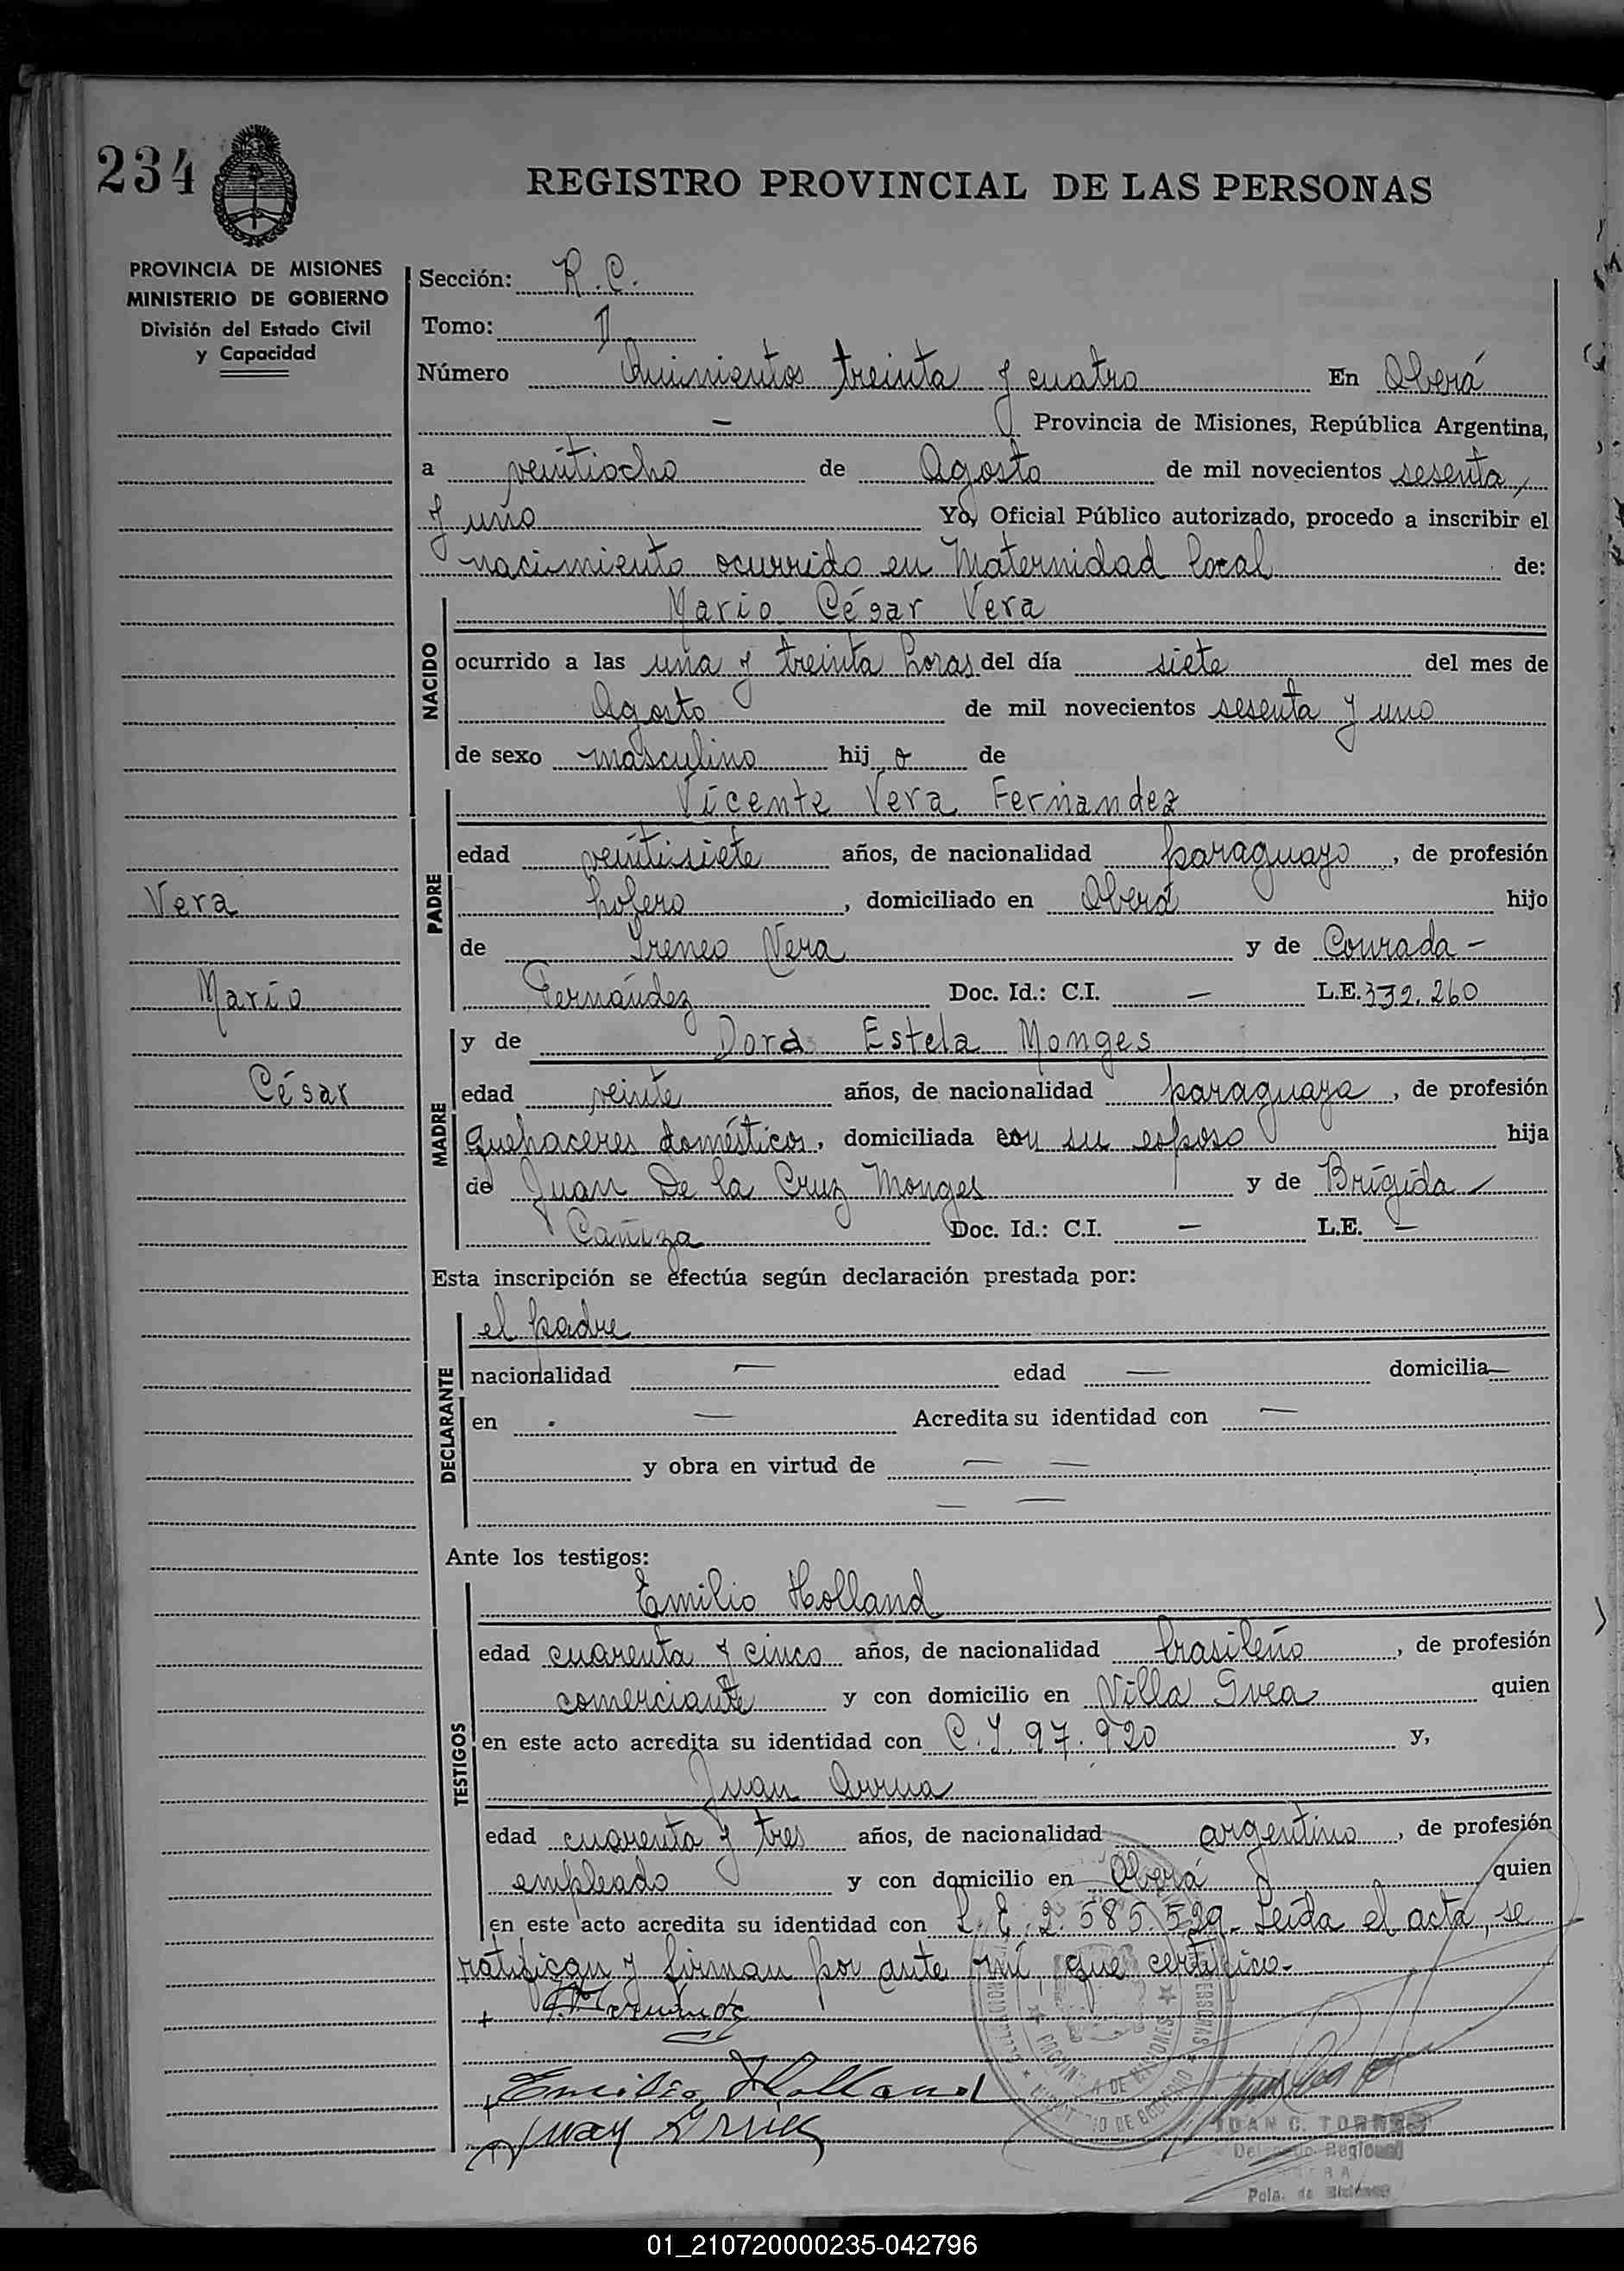 234
REGISTRO PROVINCIAL DE LAS PERSONAS
PROVINCIA DE MISIONES
MINISTERIO DE GOBIERNO
División del Estado Civil
y Capacidad
Sección: R.C.
Tomo: II
Número Quinientos treinta y cuatro En Oberá
— Provincia de Misiones, República Argentina,
a veintiocho de Agosto de mil novecientos sesenta
y uno Yo, Oficial Público autorizado, procedo a inscribir el
nacimiento ocurrido en Maternidad local de:
NACIDO
Mario César Vera
ocurrido a las una y treinta horas del día siete del mes de
Agosto de mil novecientos sesenta y uno
de sexo masculino hij o de
PADRE
Vicente Vera Fernandez
edad veintisiete años, de nacionalidad paraguayo, de profesión
Vera
hofero, domiciliado en Oberá hijo
de Ireneo Vera y de Conrada -
Mario
Fernández Doc. Id.: C.I. — L.E. 332.260
MADRE
y de Dora Estela Monges
César
edad veinte años, de nacionalidad paraguaya, de profesión
quehaceres domésticos, domiciliada con su esposo hija
de Juan De la Cruz Monges y de Brígida -
Cañiza Doc. Id.: C.I. — L.E. —
Esta inscripción se efectúa según declaración prestada por:
DECLARANTE
el padre
nacionalidad — edad — domicilia—
en — Acredita su identidad con —
y obra en virtud de — —
— —
Ante los testigos:
TESTIGOS
Emilio Holland
edad cuarenta y cinco años, de nacionalidad brasileño, de profesión
comerciante y con domicilio en Villa Svea quien
en este acto acredita su identidad con C.I. 97.920 y,
Juan
edad cuarenta y tres años, de nacionalidad argentino, de profesión
empleado y con domicilio en Oberá quien
en este acto acredita su identidad con L.E. 2.585.529- Leída el acta, se
ratifican y firman por ante mí, que certifico.-
Emilio Holland
Juan
PROVINCIA DE MISIONES
MINISTERIO DE GOBIERNO
JUAN C. TORRES
Delegado Regional
Pcia. de Misiones
01_210720000235-042796